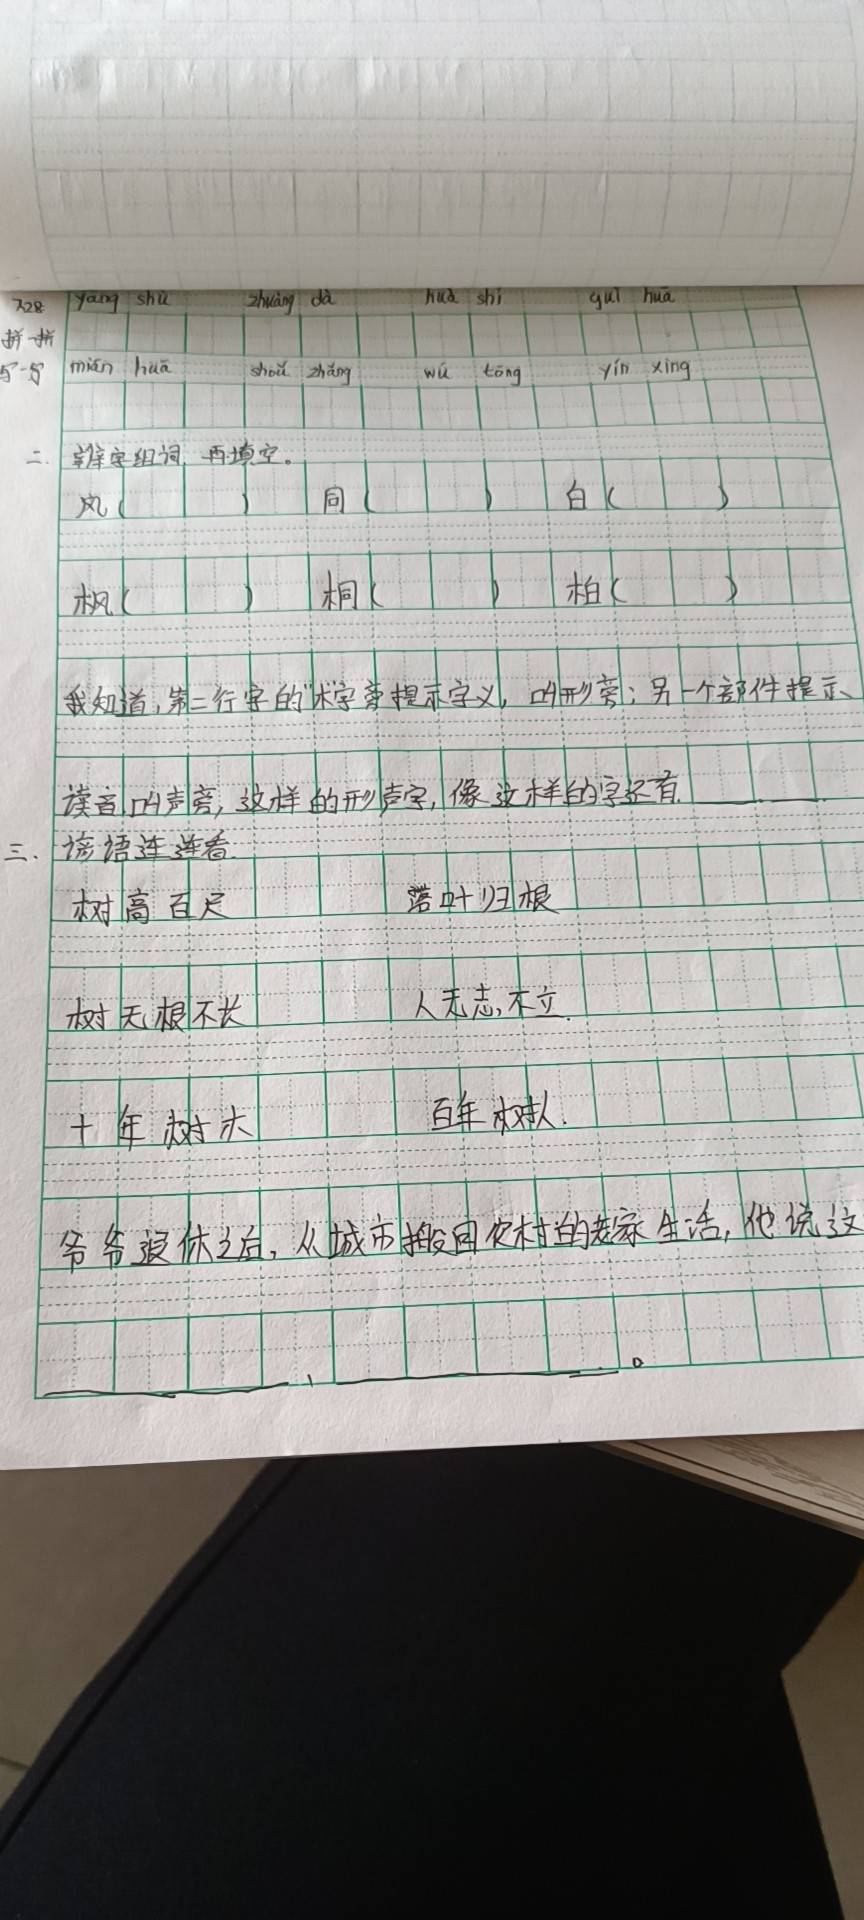 7.28 yáng shù zhuàng dà huà shí guì huā
拼一拼
写一写 mián huā shǒu zhǎng wú tóng yín xìng
二. 辨字组词,再填空。
风( ) 同( ) 白( )
枫( ) 桐( ) 柏( )
我知道,第二行字的"木"字旁提示字义,叫形旁;另一个部件提示
读音叫声旁,这样的形声字,像这样的字还有
三. 谚语连连看.
树高百尺 落叶归根
树无根不长 人无志,不立.
十年树木 百年树人.
爷爷退休之后,从城市搬回农村的老家生活,他说这
, 。